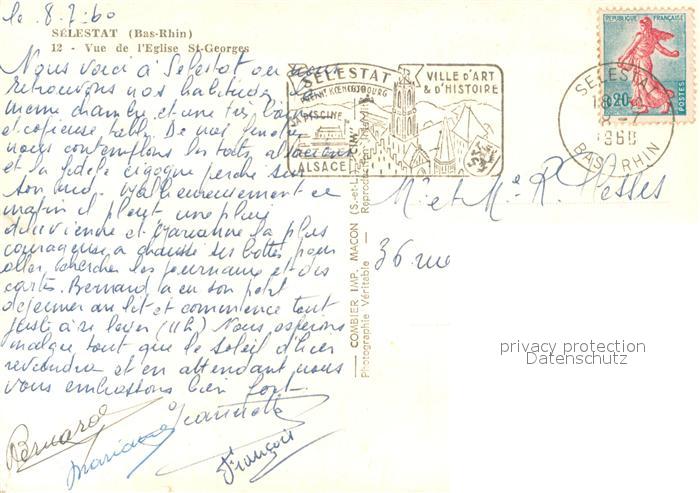 le 8.7.60
SÉLESTAT (Bas-Rhin)
12 - Vue de l'Eglise St-Georges
Nous voici à Sélestat où nous
retrouvons nos habitudes
même chambre et une très bonne
et copieuse table. De nos fenêtres
nous contemplons les toits alsaciens
et la fidèle cigogne perchée sur
son nid. Malheureusement ce
matin il pleut une pluie
diluvienne et Marianne la plus
courageuse a chaussé ses bottes pour
aller chercher les journaux et des
cartes. Bernard a eu son petit
déjeuner au lit et commence tout
juste à se lever (11h) Nous espérons
malgré tout que le soleil d'hier
reviendra et en attendant nous
vous embrassons bien fort.
Bernard
Marianne
Jeannette
François
COMBIER IMP. MACON (S.-et-L.) "CIM"
Photographie Véritable — Reproduction
SÉLESTAT
VILLE D'ART
& D'HISTOIRE
KOENIGSBOURG
SA PISCINE
ALSACE
REPUBLIQUE FRANÇAISE
0,20
POSTES
SELESTAT
18
8-7
1960
BAS-RHIN
Mr et Me R. Hesses
36 rue
privacy protection
Datenschutz